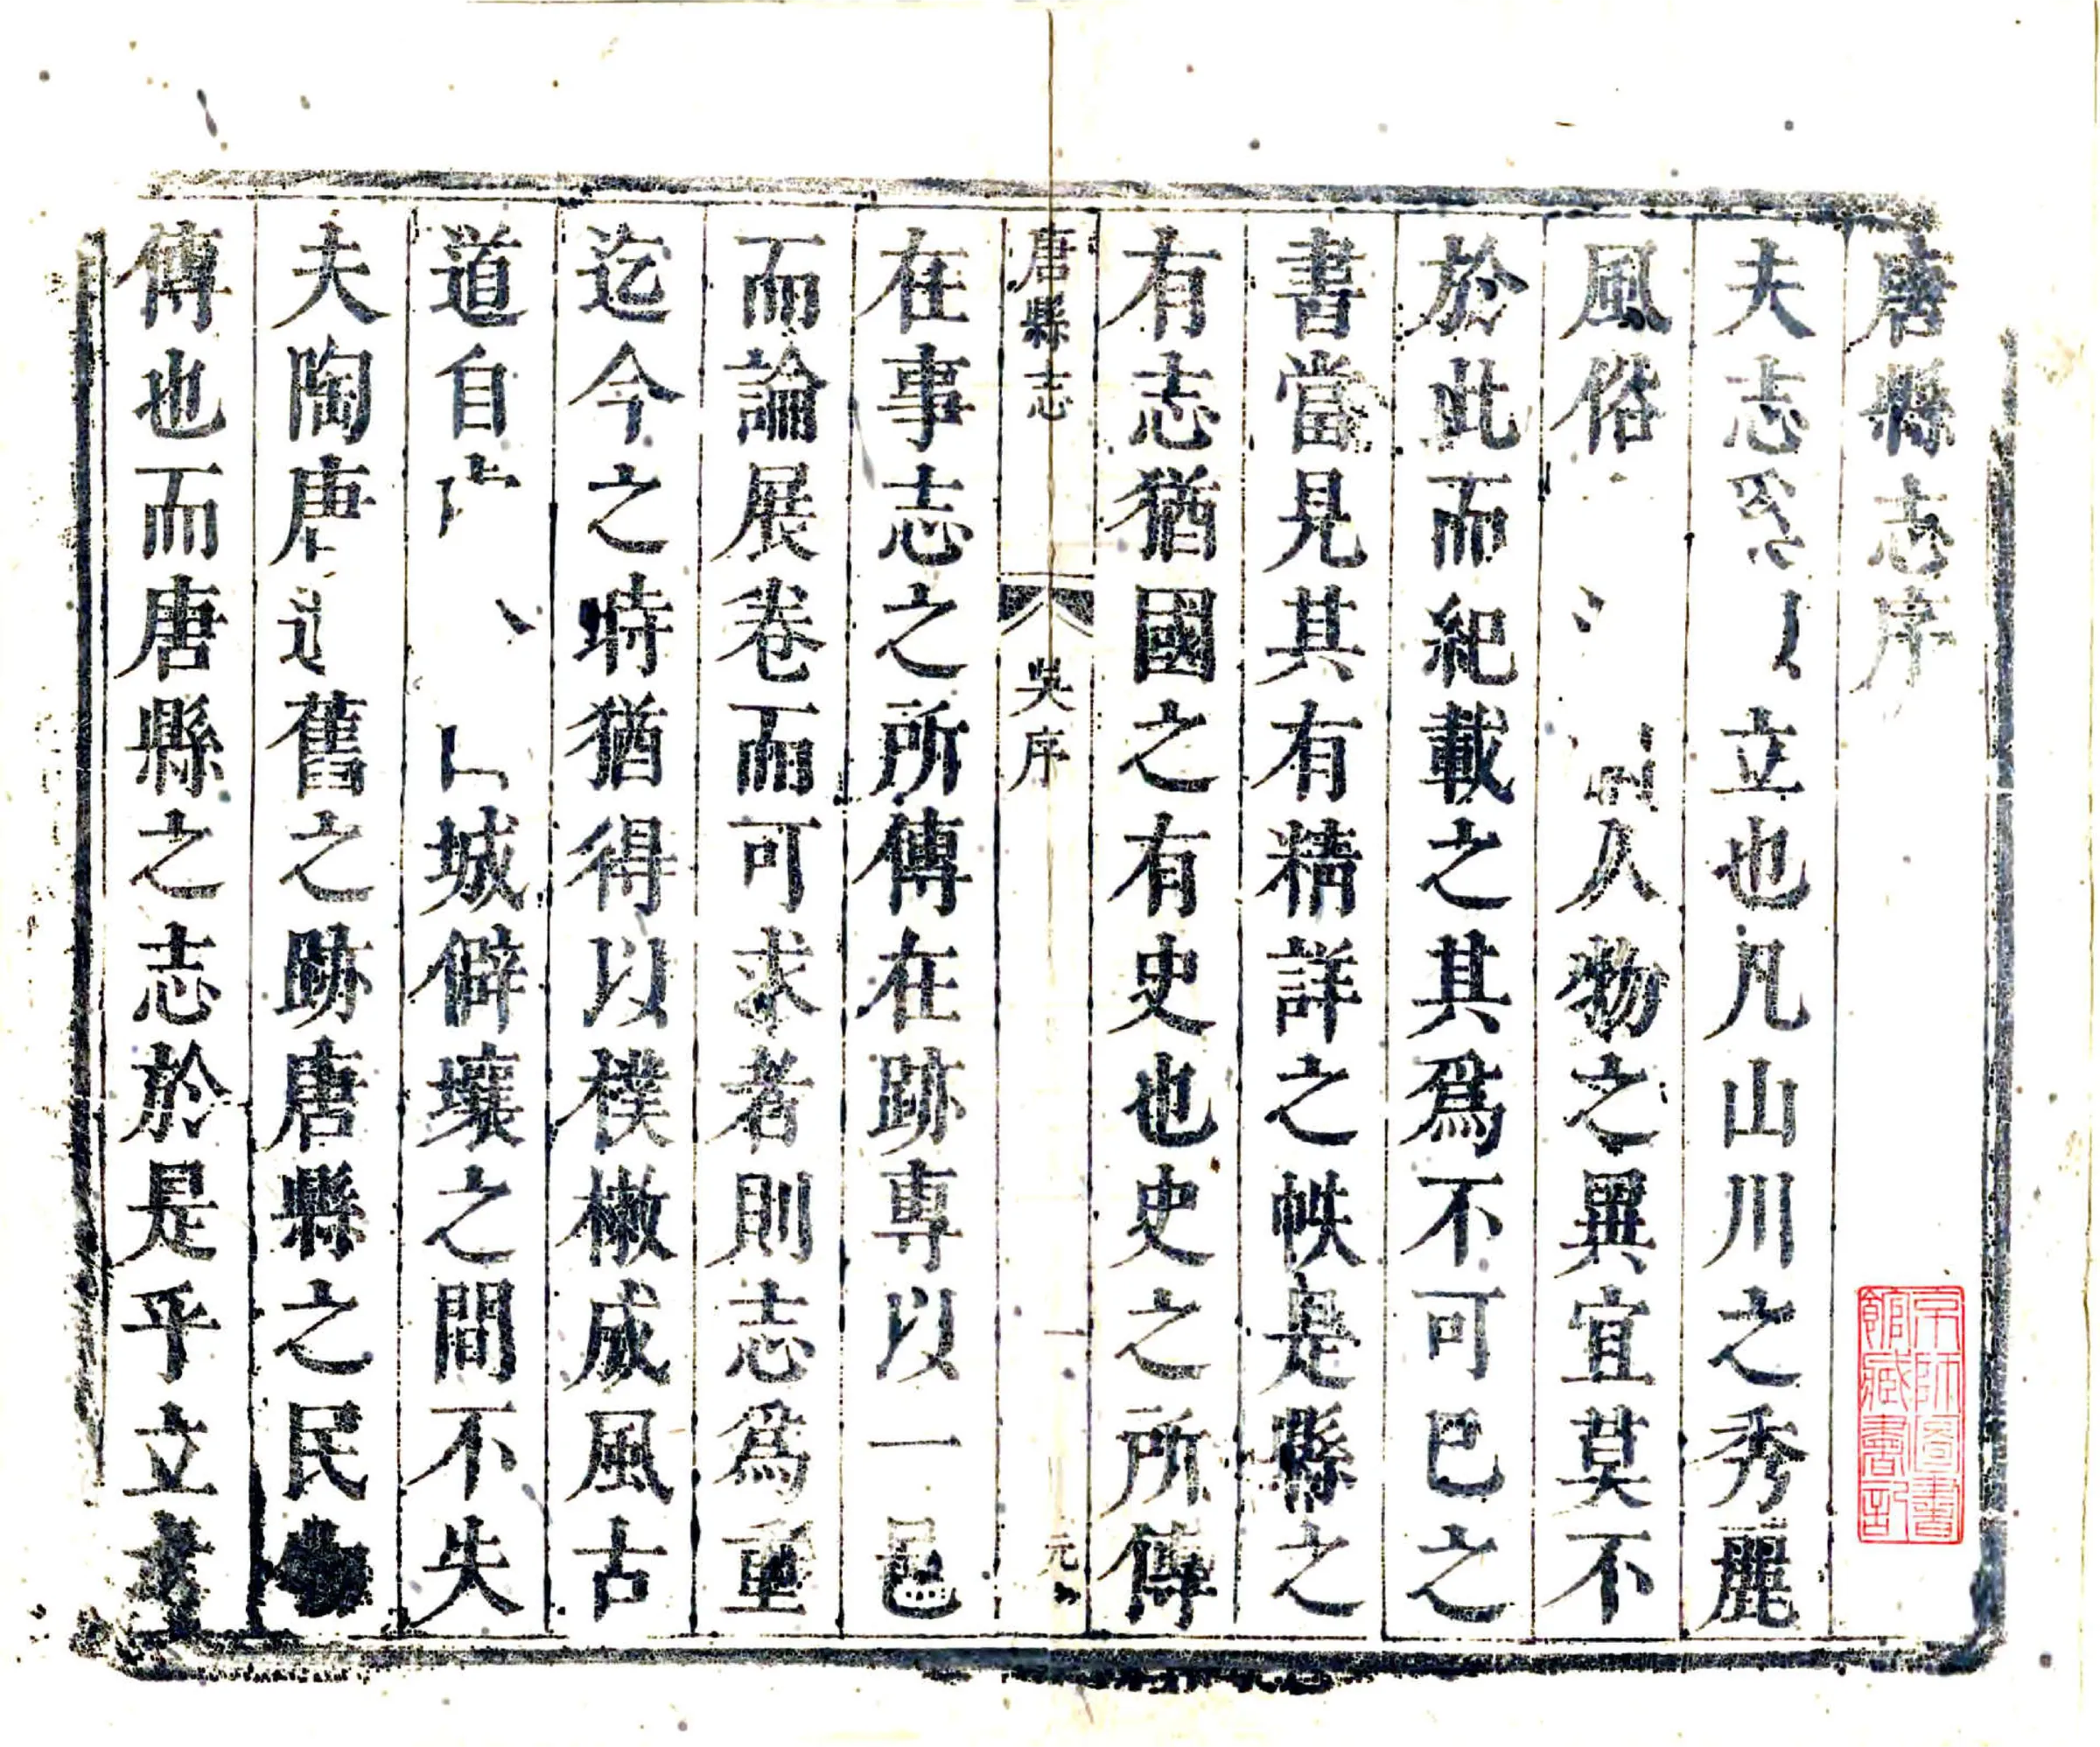 唐縣志序
夫志立也凡山川之秀麗
風俗人物之異宜莫不
於此而紀載之其爲不可已之
書當見其有精詳之帙是縣之
有志猶國之有史也史之所傳
唐縣志 吳序 一
在事志之所傳在跡專以一邑
而論展卷而可求者則志爲重
迄今之時猶得以樸樕成風古
道自城僻壤之間不失
夫陶唐舊之跡唐縣之民物
傳也而唐縣之志於是乎立
京師圖書
館藏書記